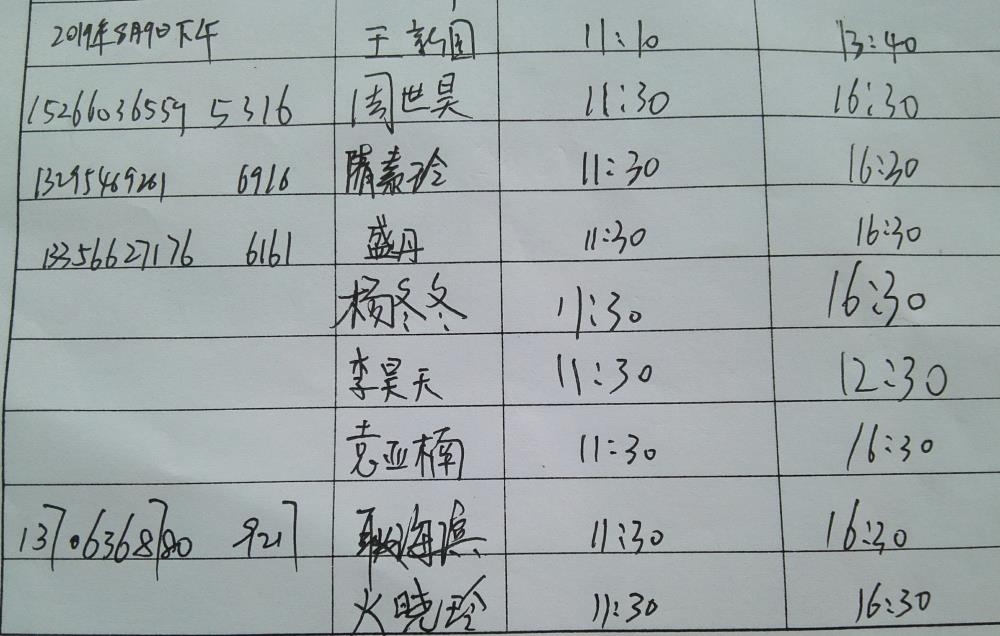 2019年8月9日下午 王新国 11:10 13:40
15266036559 5316 周世昊 11:30 16:30
13295469261 6916 隋素玲 11:30 16:30
13356627176 6161 盛丹 11:30 16:30
杨冬冬 11:30 16:30
李昊天 11:30 12:30
袁亚楠 11:30 16:30
13706368780 9217 11:30 16:30
晓玲 11:30 16:30